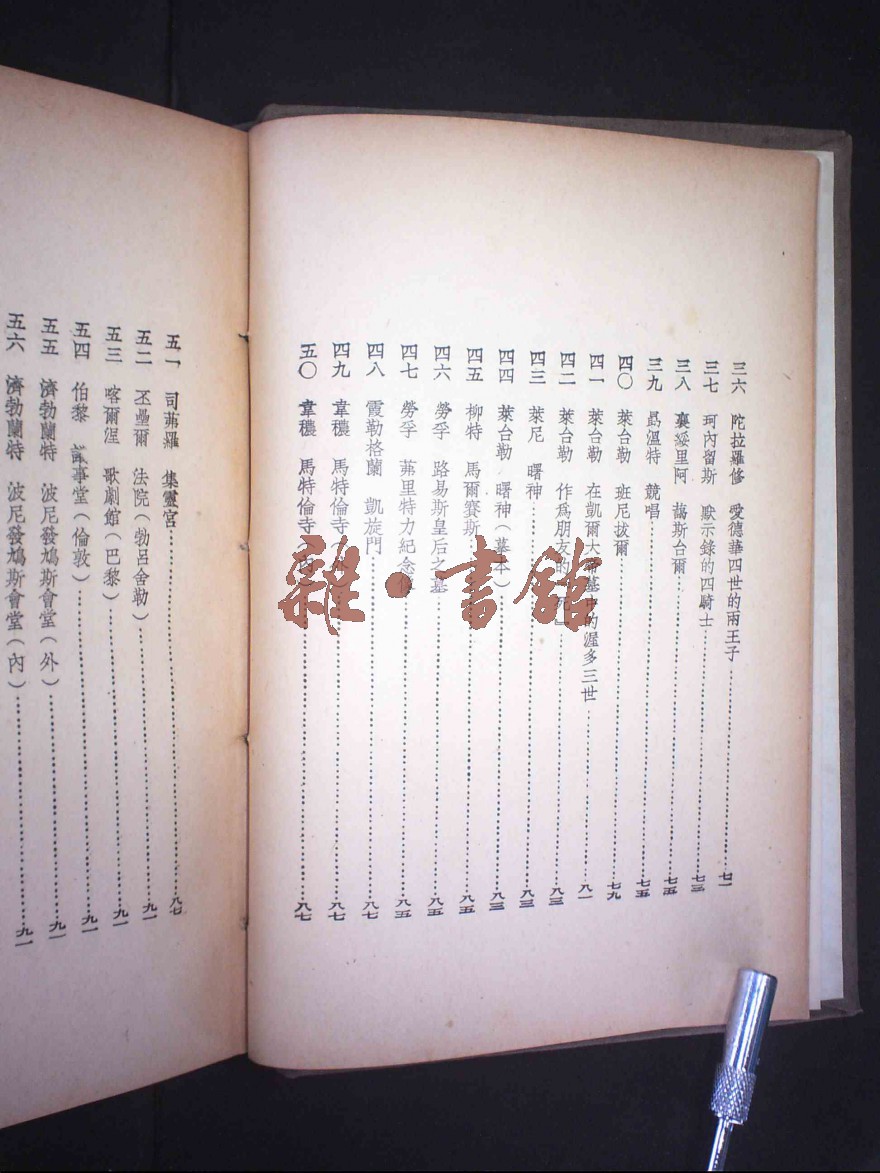 三六 陀拉羅修 愛德華四世的兩王子 七一
三七 珂內留斯 默示錄的四騎士 七三
三八 襄綏里阿 梅斯台爾 七五
三九 昂溫特 競唱 七五
四〇 萊台勒 班尼拔爾 七九
四一 萊台勒 在凱爾大帝墓中的渥多三世 八一
四二 萊台勒 作為朋友的『死』 八三
四三 萊尼 曙神 八三
四四 萊台勒 曙神(摹本) 八三
四五 柳特 馬爾賽斯 八五
四六 勞孚 路易斯皇后之墓 八五
四七 勞孚 茀里特力紀念像 八五
四八 霞勒格蘭 凱旋門 八七
四九 韋穠 馬特倫寺(外) 八七
五〇 韋穠 馬特倫寺(內) 八七
五一 司茀羅 集靈宮 八七
五二 丕壘爾 法院(勃呂舍勒) 九一
五三 喀爾涅 歌劇館(巴黎) 九一
五四 伯黎 議事堂(倫敦) 九一
五五 濟勃蘭特 波尼發鳩斯會堂(外) 九一
五六 濟勃蘭特 波尼發鳩斯會堂(內) 九一
雜·書館